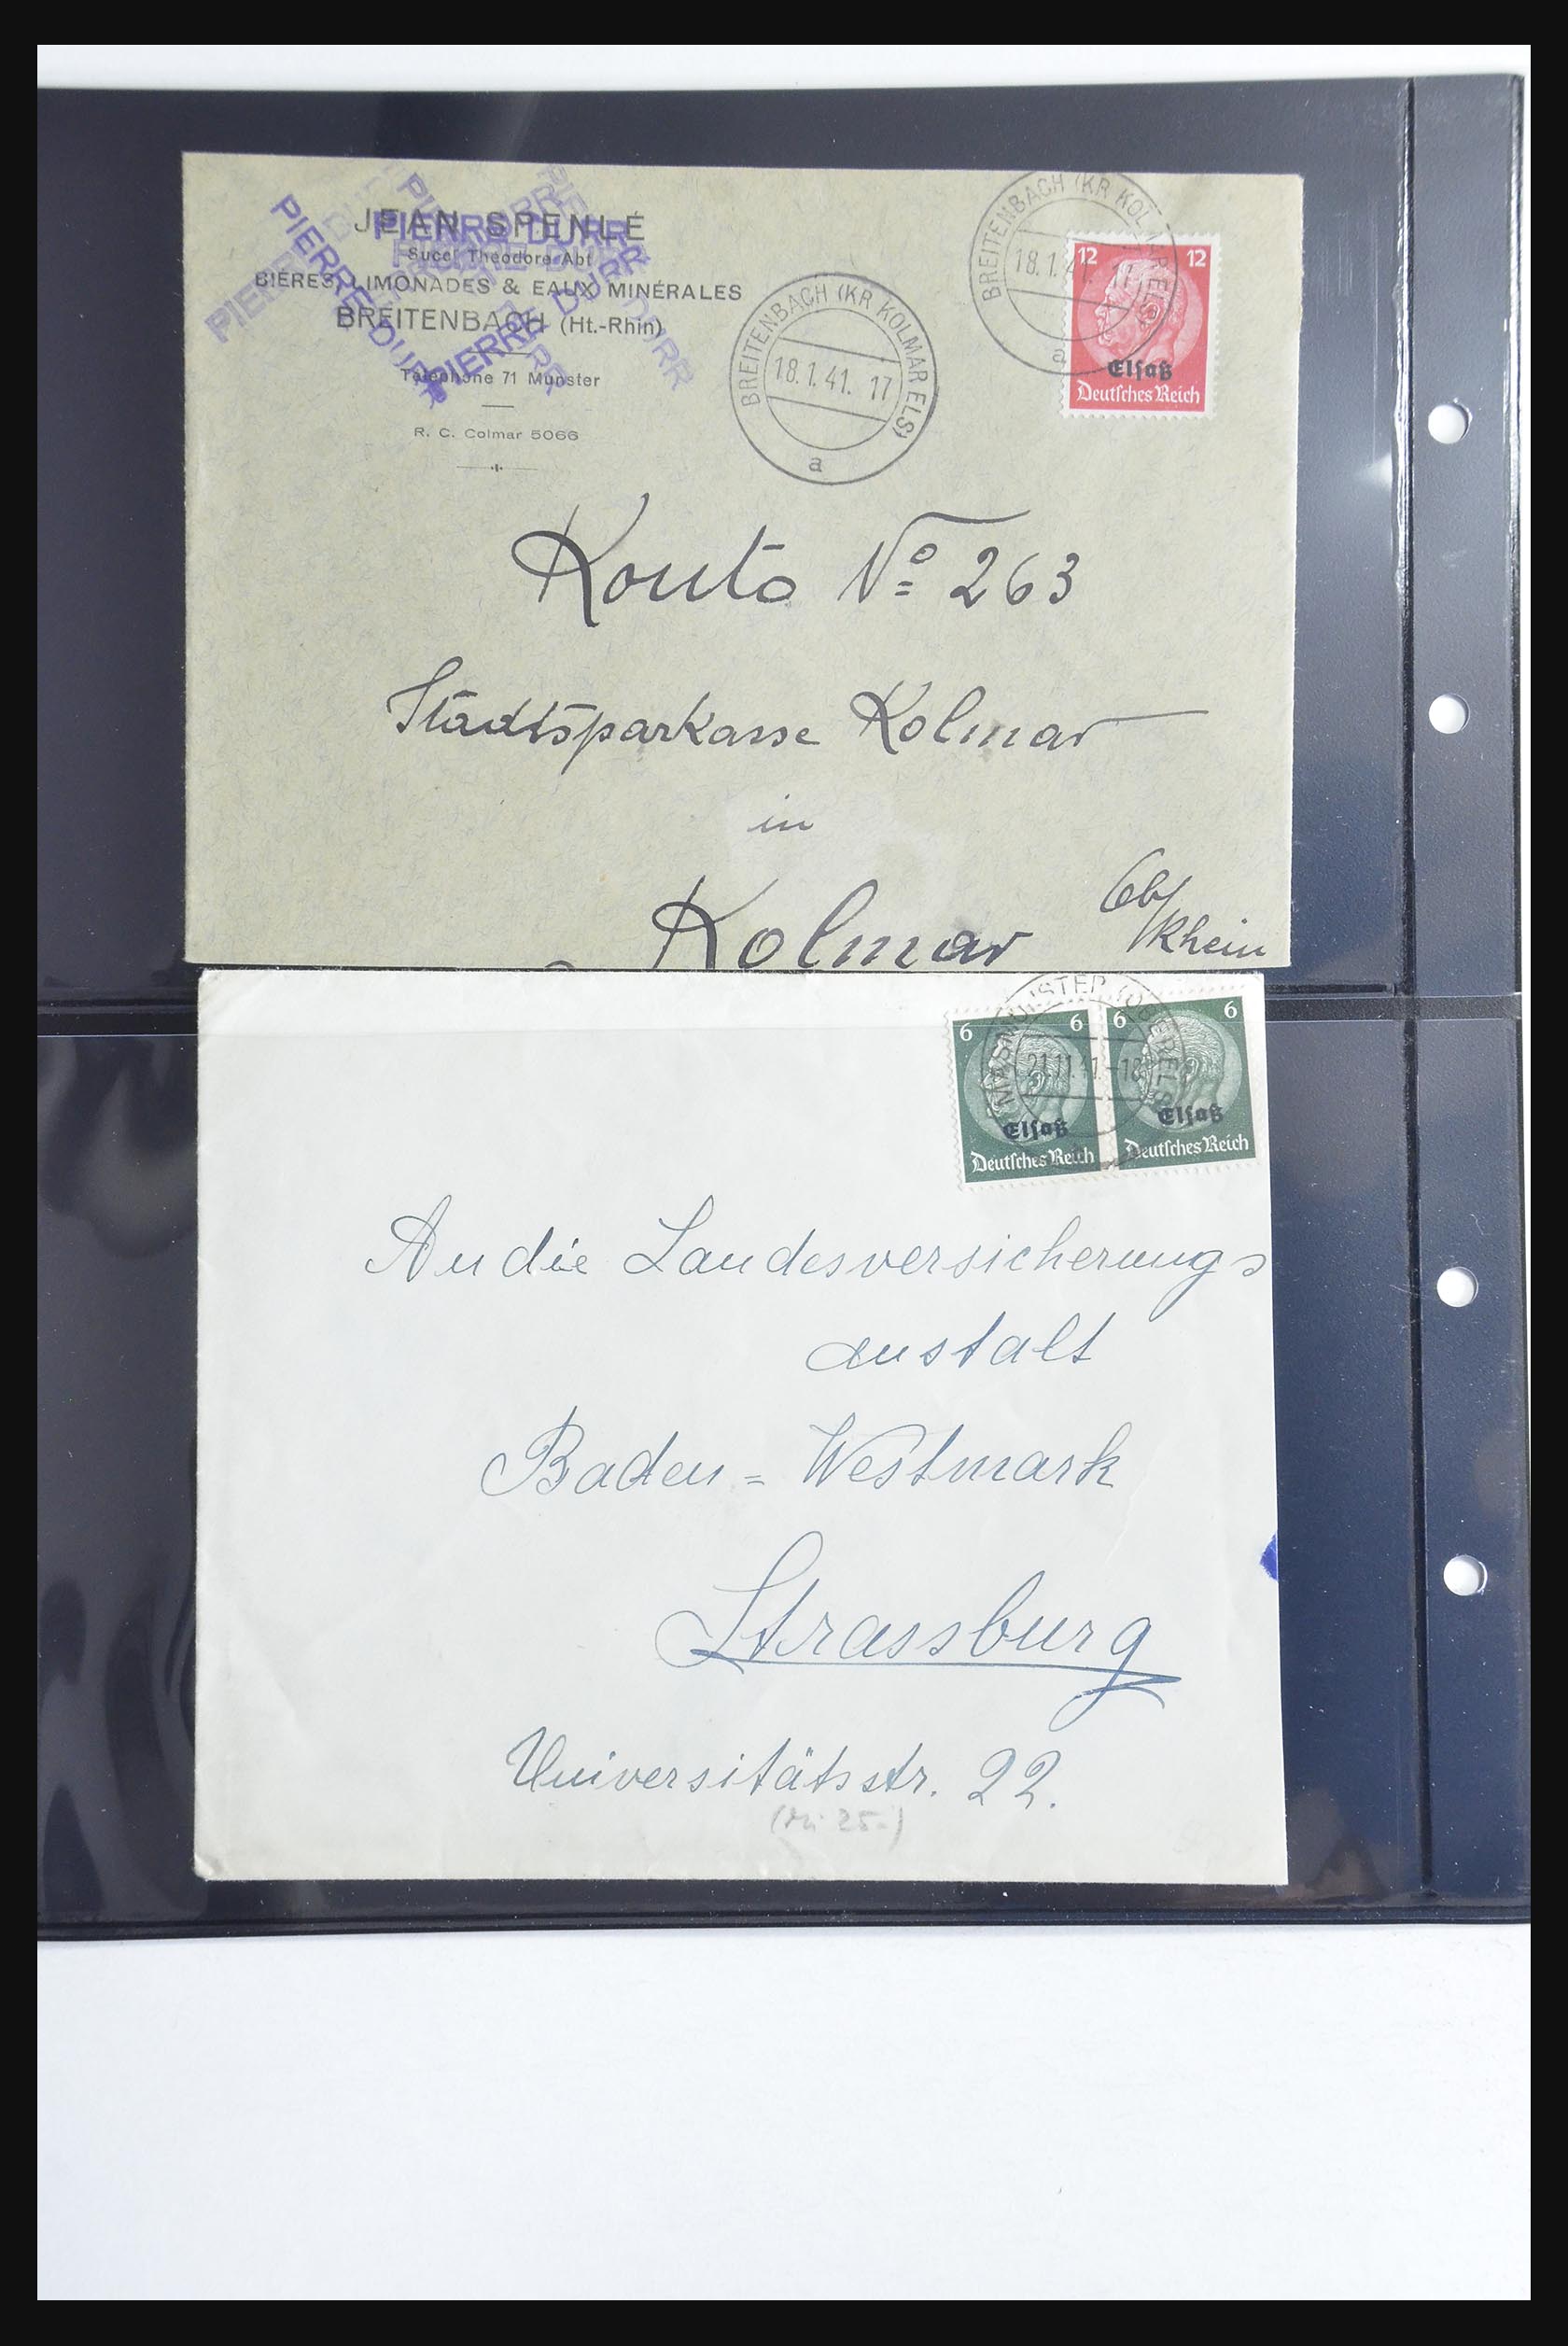 JEAN SPENLÉ
PIERRE DURR
PIERRE DURR
PIERRE DURR
Sucʳ Théodore Abt
BIÈRES, LIMONADES & EAUX MINÉRALES
BREITENBACH (Ht.-Rhin)
Téléphone 71 Munster
R. C. Colmar 5066
BREITENBACH (KR KOLMAR ELS)
18.1.41. 17
a
BREITENBACH (KR KOLMAR ELS)
18.1.41. 17
a
12 12
Elsaß
Deutsches Reich
Konto Nº 263
Stadtsparkasse Kolmar
in
Kolmar
Rhein
MASMÜNSTER (OBERELS)
21.11.41.-18
6 6
Elsaß
Deutsches Reich
6 6
Elsaß
Deutsches Reich
An die Landesversicherungs
anstalt
Baden=Westmark
Strassburg
Universitätsstr. 22.
(Mi 25.-)